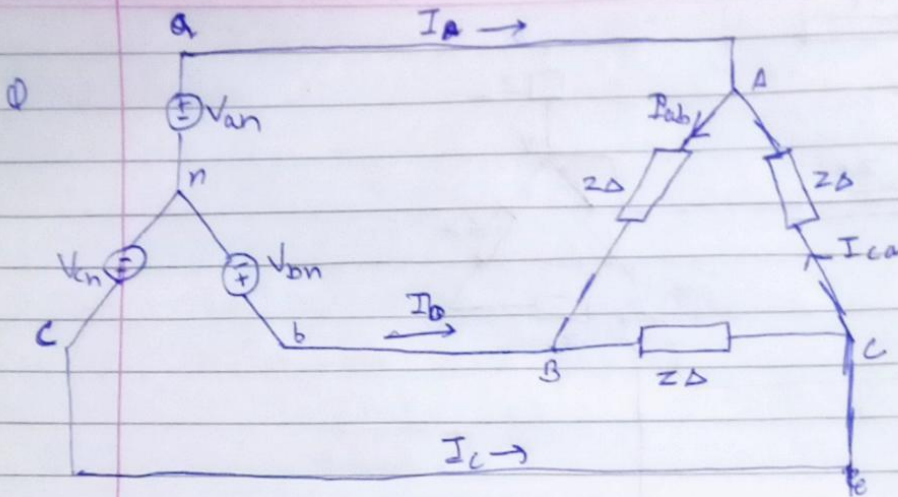 a
I_A →
①
Van
A
Iab
n
Z∆
Z∆
Vcn
Vbn
Ica
I_b
C
b
B
Z∆
C
I_c →